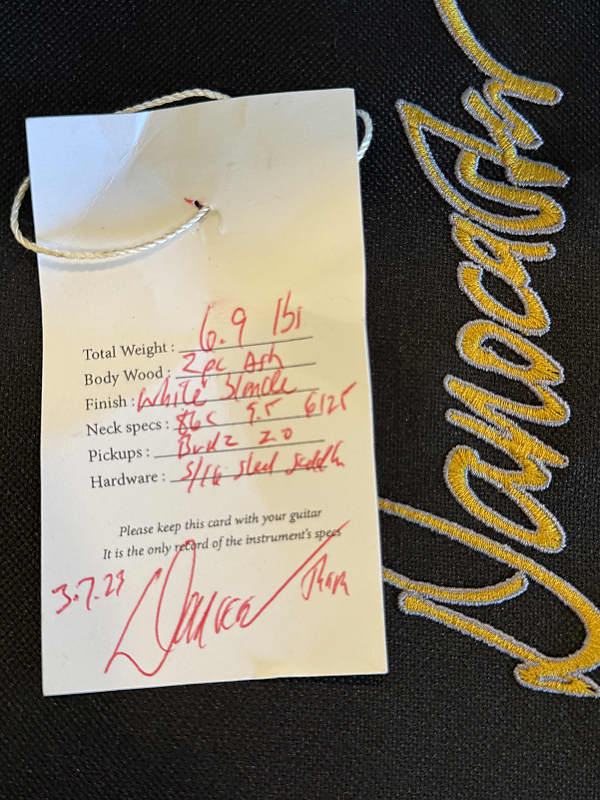 Total Weight : 6.9 lbs
Body Wood : 2pc Ash
Finish : White Blonde
Neck specs : 86c 9.5 6125
Pickups : 2.0
Hardware : 5/16 steel saddle
Please keep this card with your guitar
It is the only record of the instrument's specs
3.7.23
Danocaster